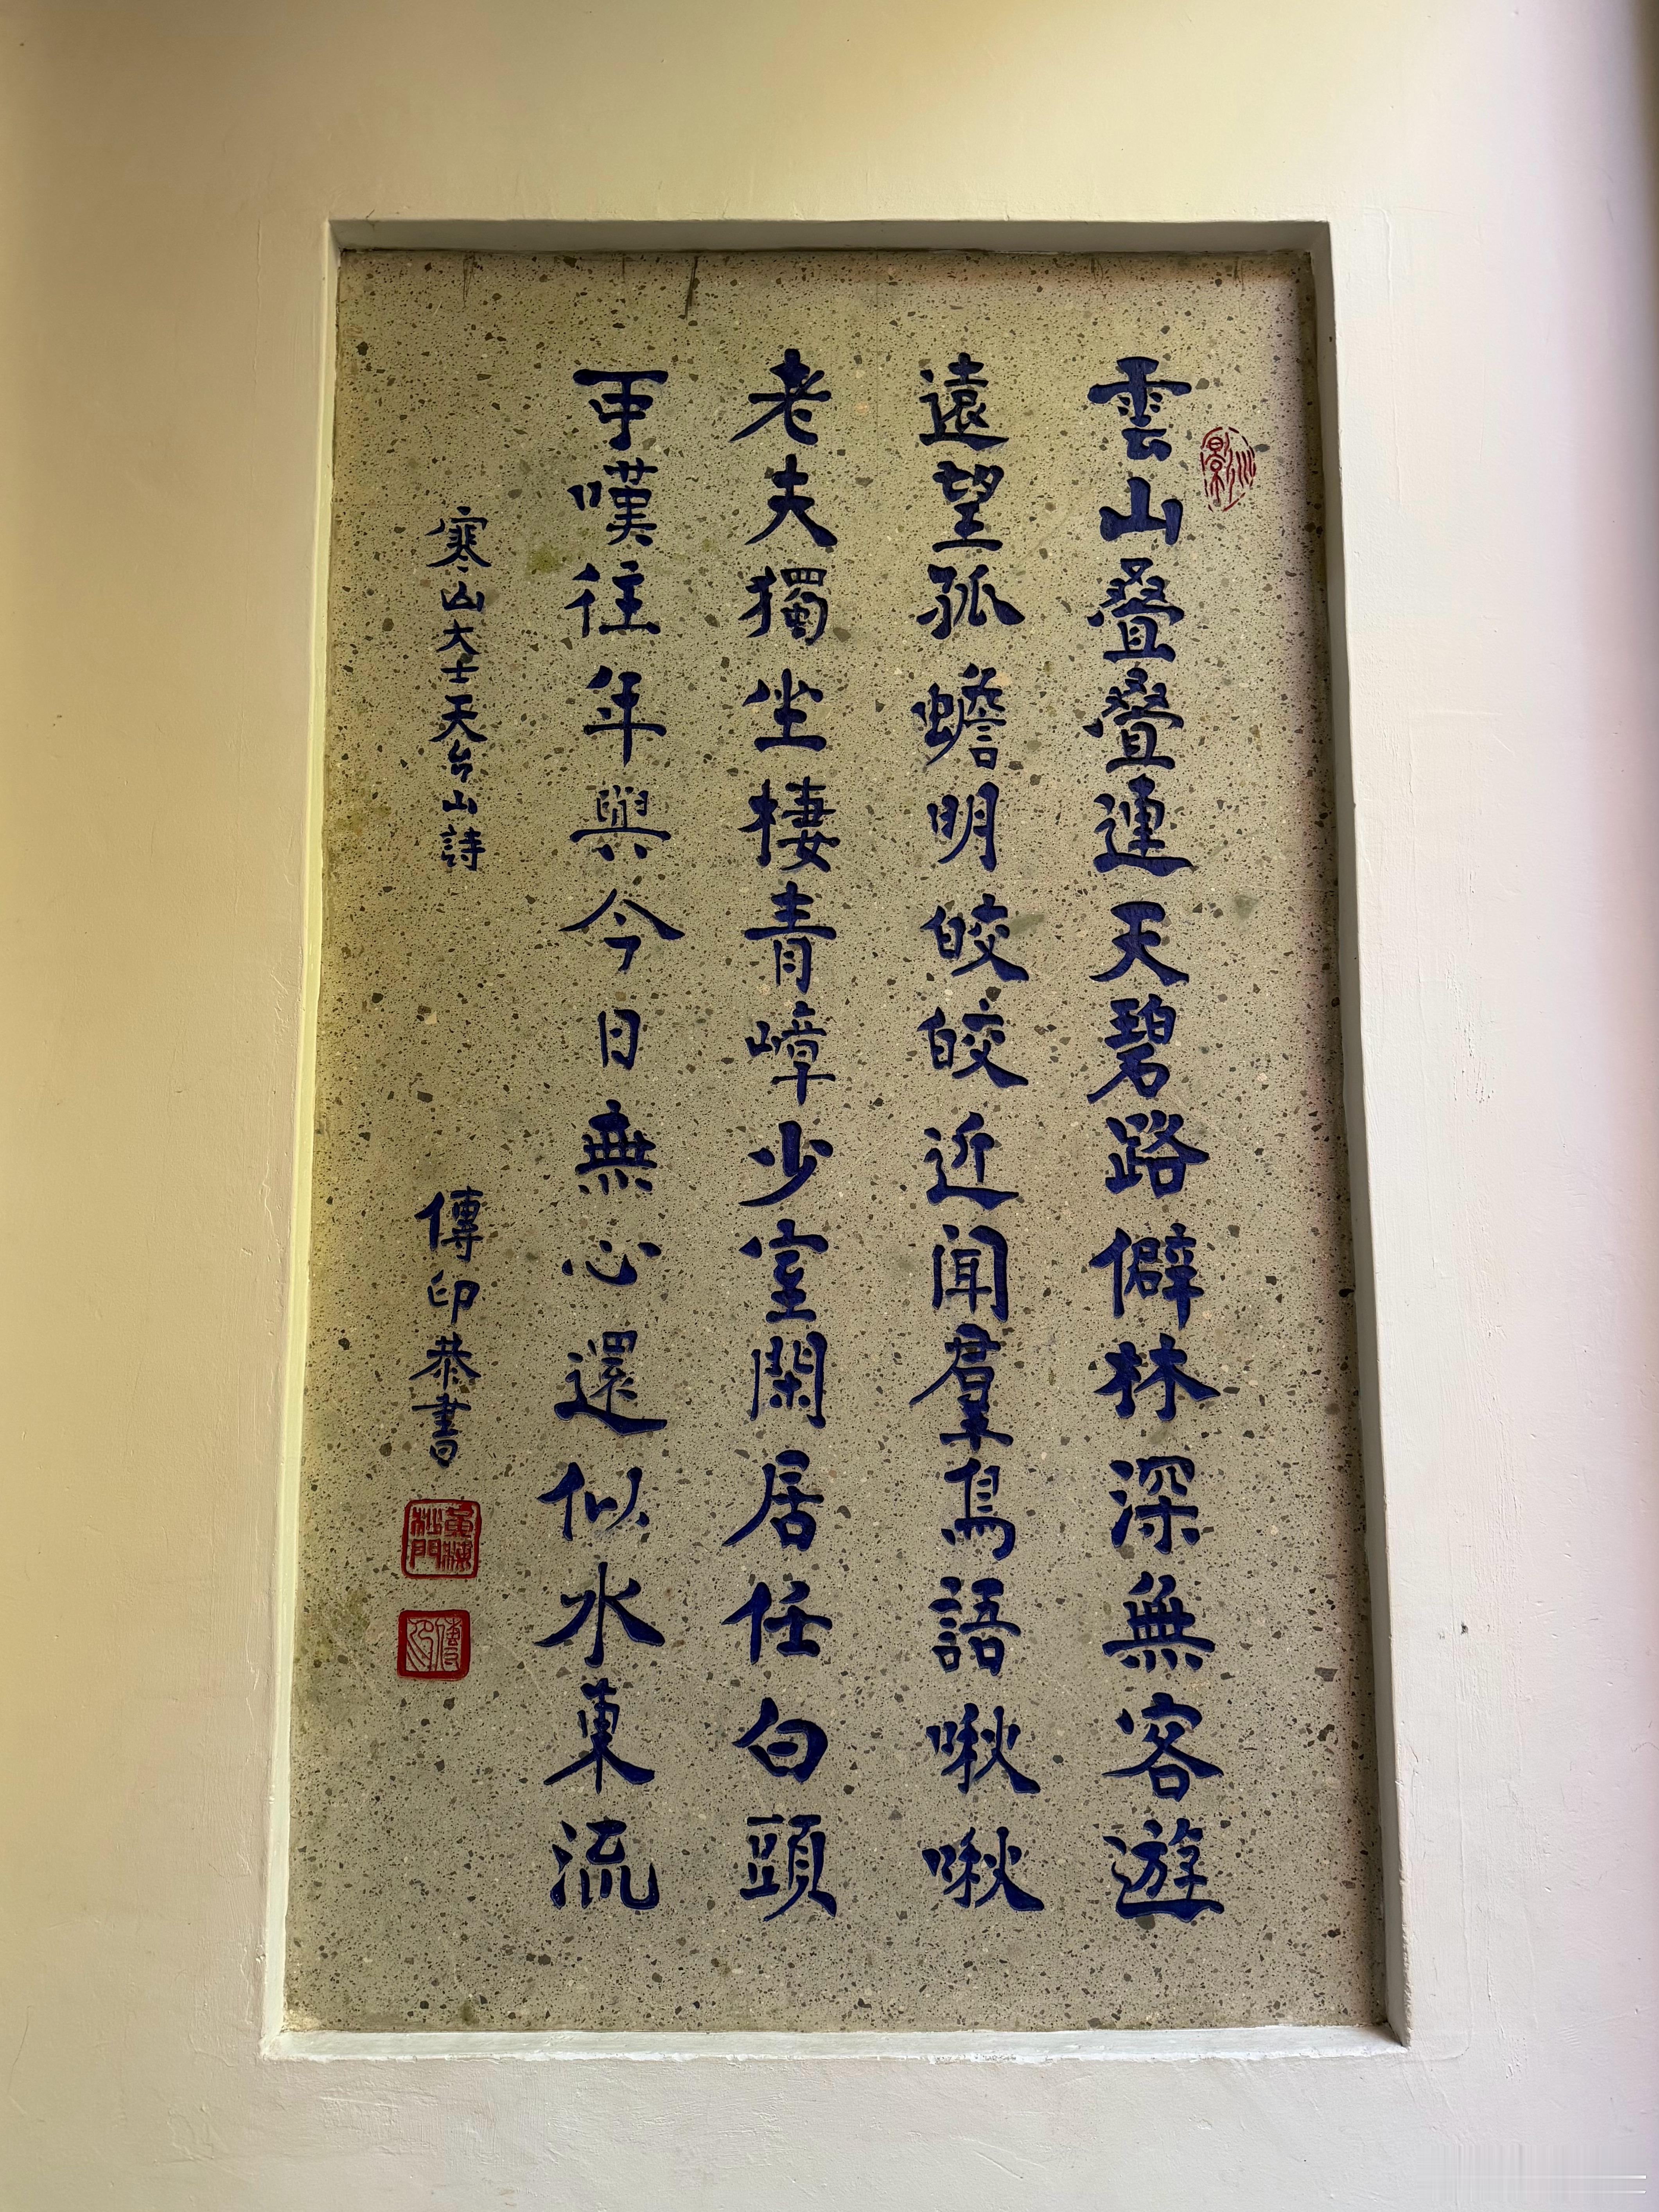 雲山叠叠連天碧路僻林深無客遊
遠望孤蟾明皎皎近聞羣鳥語啾啾
老夫獨坐棲青嶂少室閑居任白頭
可嘆往年與今日無心還似水東流
寒山大士天台山詩
傳印恭書